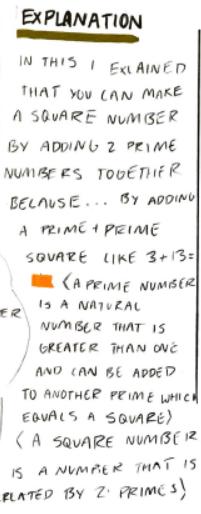 EXPLANATION
IN THIS I EXLAINED
THAT YOU CAN MAKE
A SQUARE NUMBER
BY ADDING 2 PRIME
NUMBERS TOGETHER
BECAUSE... BY ADDING
A PRIME + PRIME
SQUARE LIKE 3+13=
(A PRIME NUMBER
ER IS A NATURAL
NUMBER THAT IS
GREATER THAN ONE
AND CAN BE ADDED
TO ANOTHER PRIME WHICH
EQUALS A SQUARE)
(A SQUARE NUMBER
IS A NUMBER THAT IS
RLATED BY 2 PRIMES)